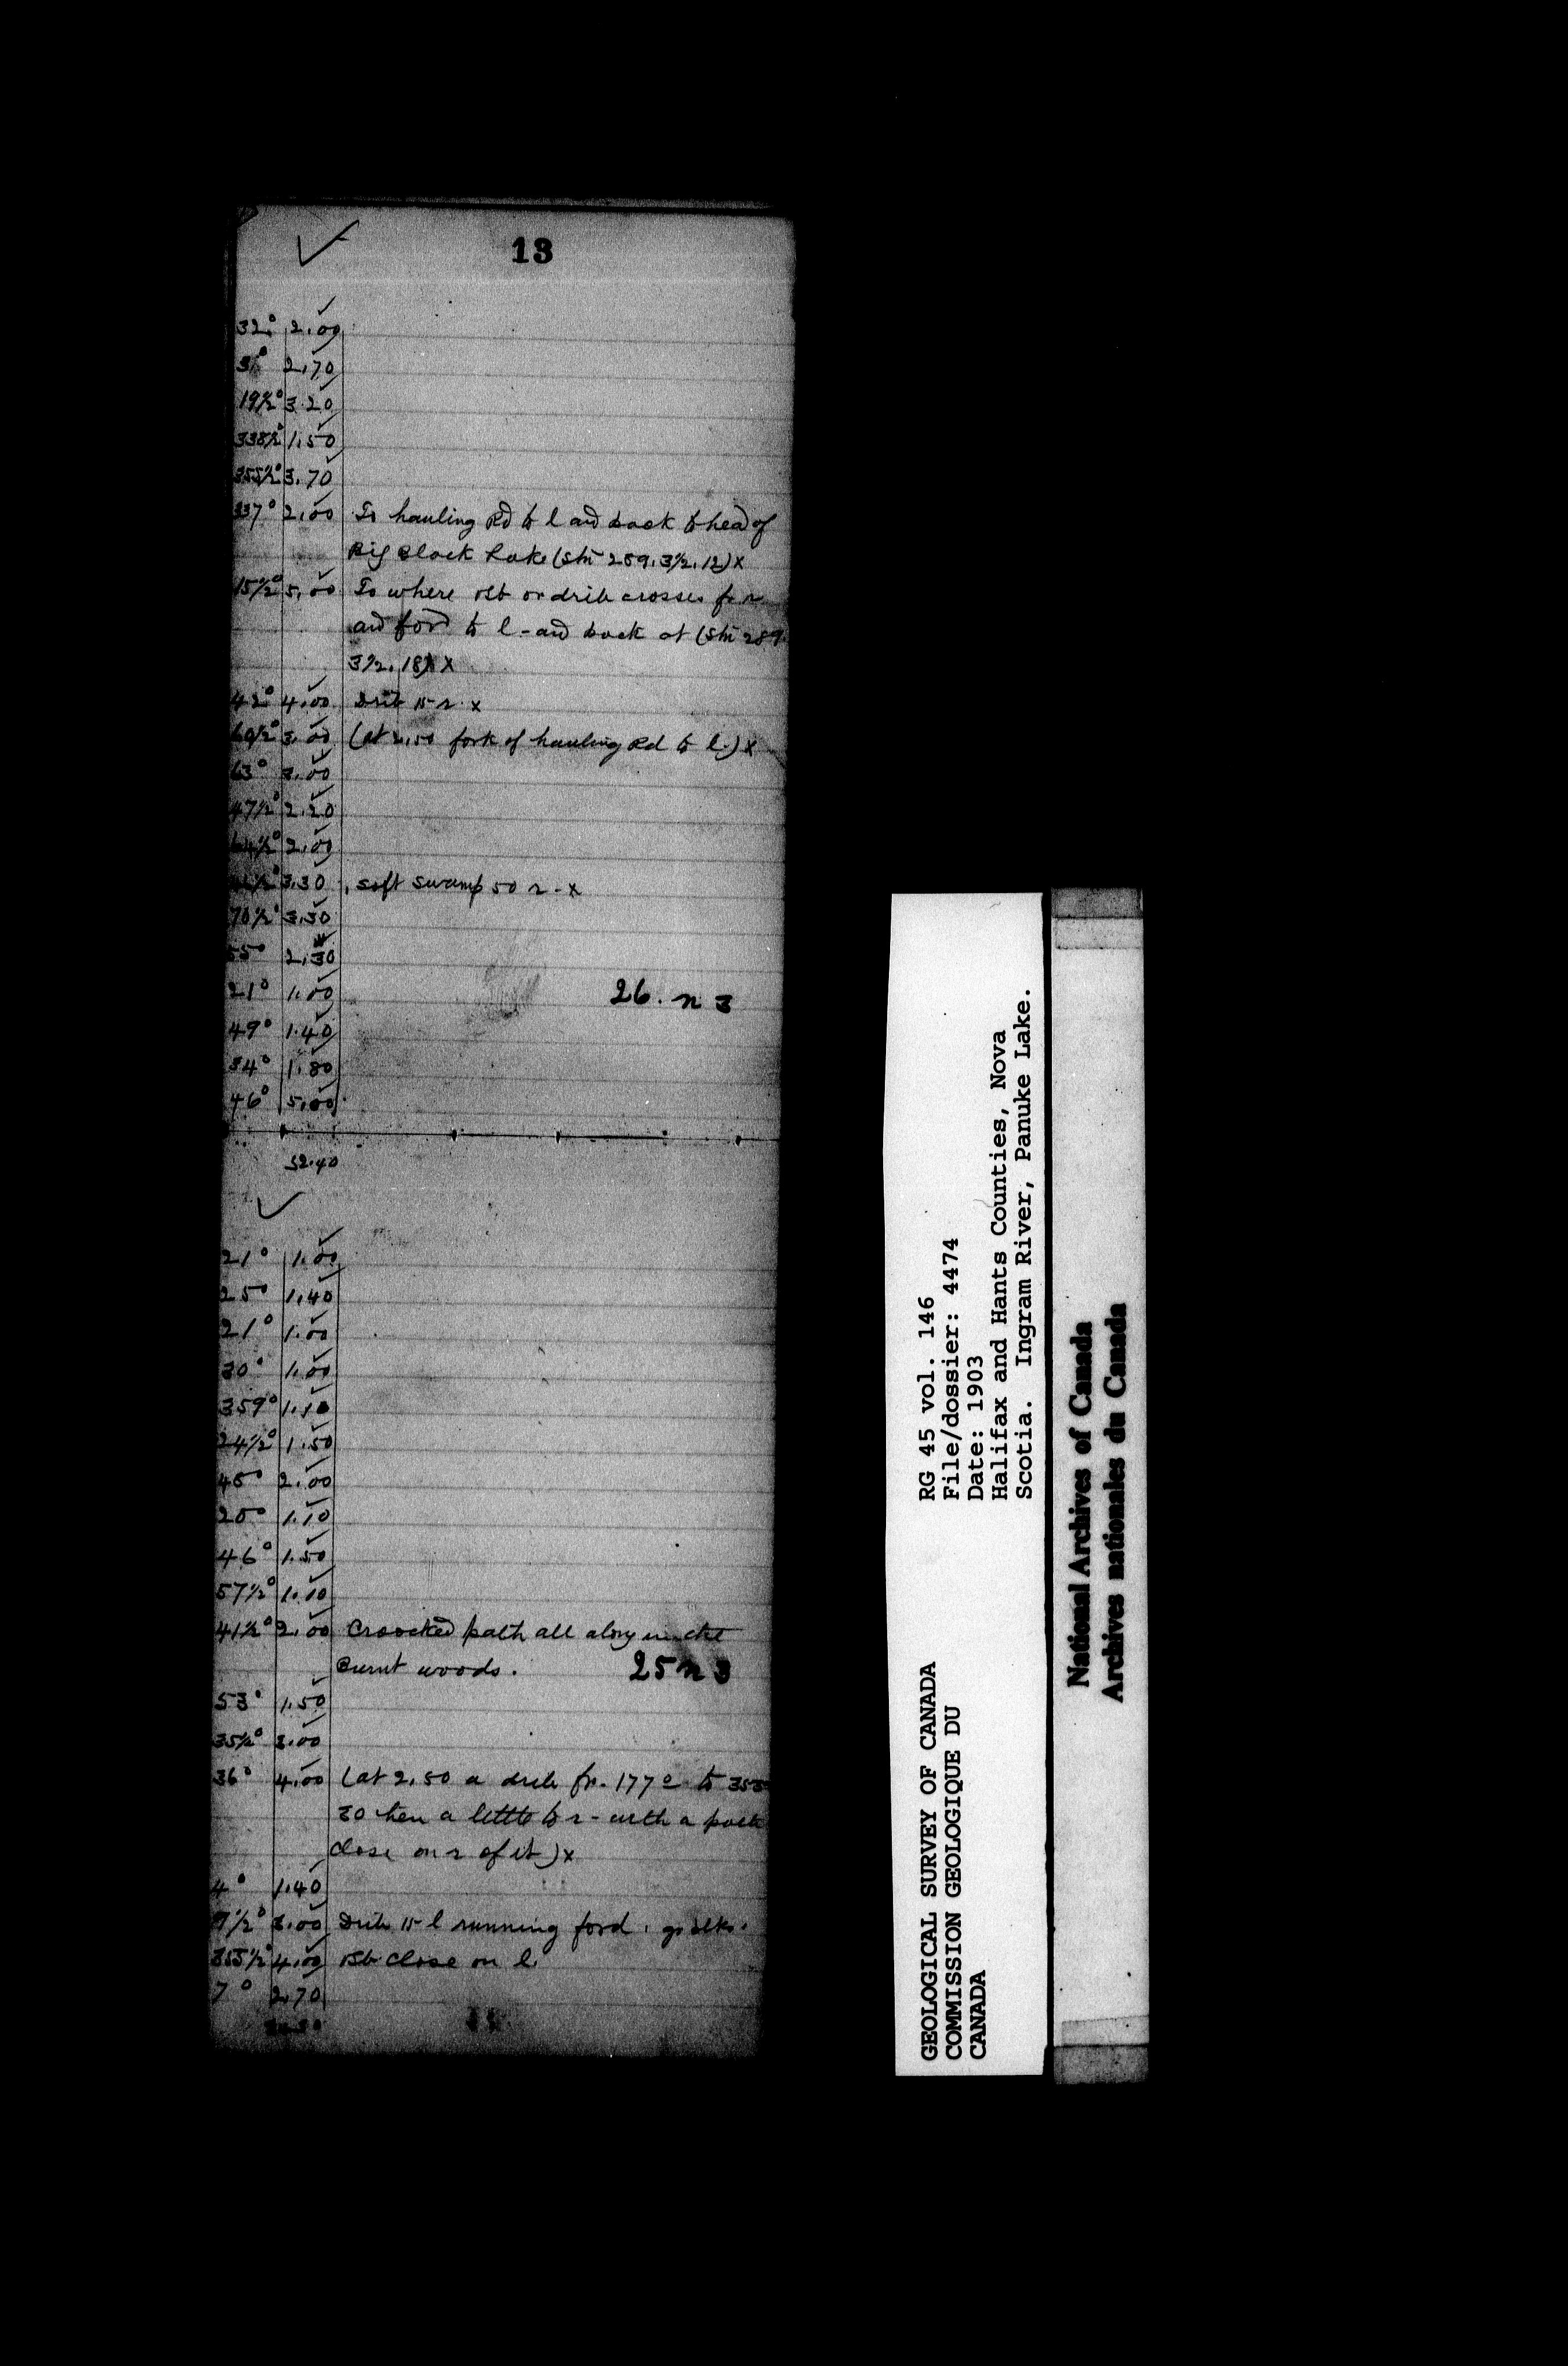 13
32° 2.00
31° 2.70
19½° 3.20
338½° 1.50
355½° 3.70
337° 2.00 To hauling Rd to l and back to head of
Big Black Lake (stn 289. 3½. 12) x
15½° 5.00 To where or drib crosses fr r
and ford to l - and back at (stn 289.
3½. 18) x
42° 4.00 Drib 15 r x
60½° 3.00 (at 2.50 fork of hauling Rd to l.) x
63° 3.00
47½° 2.20
64½° 2.00
3.30 soft swamp 50 r - x
70½° 3.30
55° 2.30
21° 1.00 26. n 3
49° 1.40
34° 1.80
46° 5.00
52.40
21° 1.00
25° 1.40
21° 1.00
30° 1.00
359° 1.10
24½° 1.50
45° 2.00
20° 1.10
46° 1.50
57½° 1.10
41½° 2.00 Croocked path all along in the
Burnt woods. 25 n 3
53° 1.50
35½° 3.00
36° 4.00 (at 2.50 a drib fr. 177° to 353°
30 then a little to r - with a path
close on r of it) x
4° 1.40
7½° 3.00 Drib 15 l running ford.
353½° 4.00 close on l.
7° 2.70
GEOLOGICAL SURVEY OF CANADA
COMMISSION GEOLOGIQUE DU
CANADA
RG 45 vol. 146
File/dossier: 4474
Date: 1903
Halifax and Hants Counties, Nova
Scotia. Ingram River, Panuke Lake.
National Archives of Canada
Archives nationales du Canada